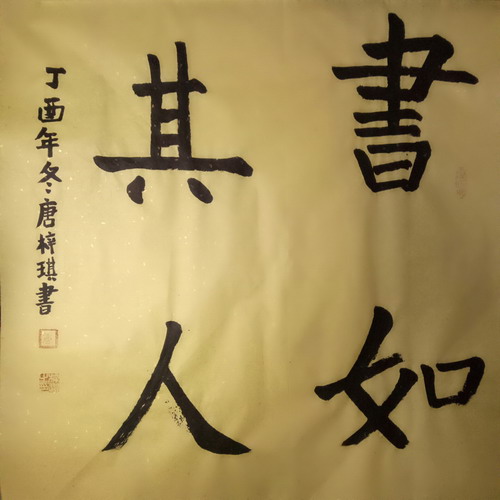 書如
其人
丁酉年冬唐梓琪書